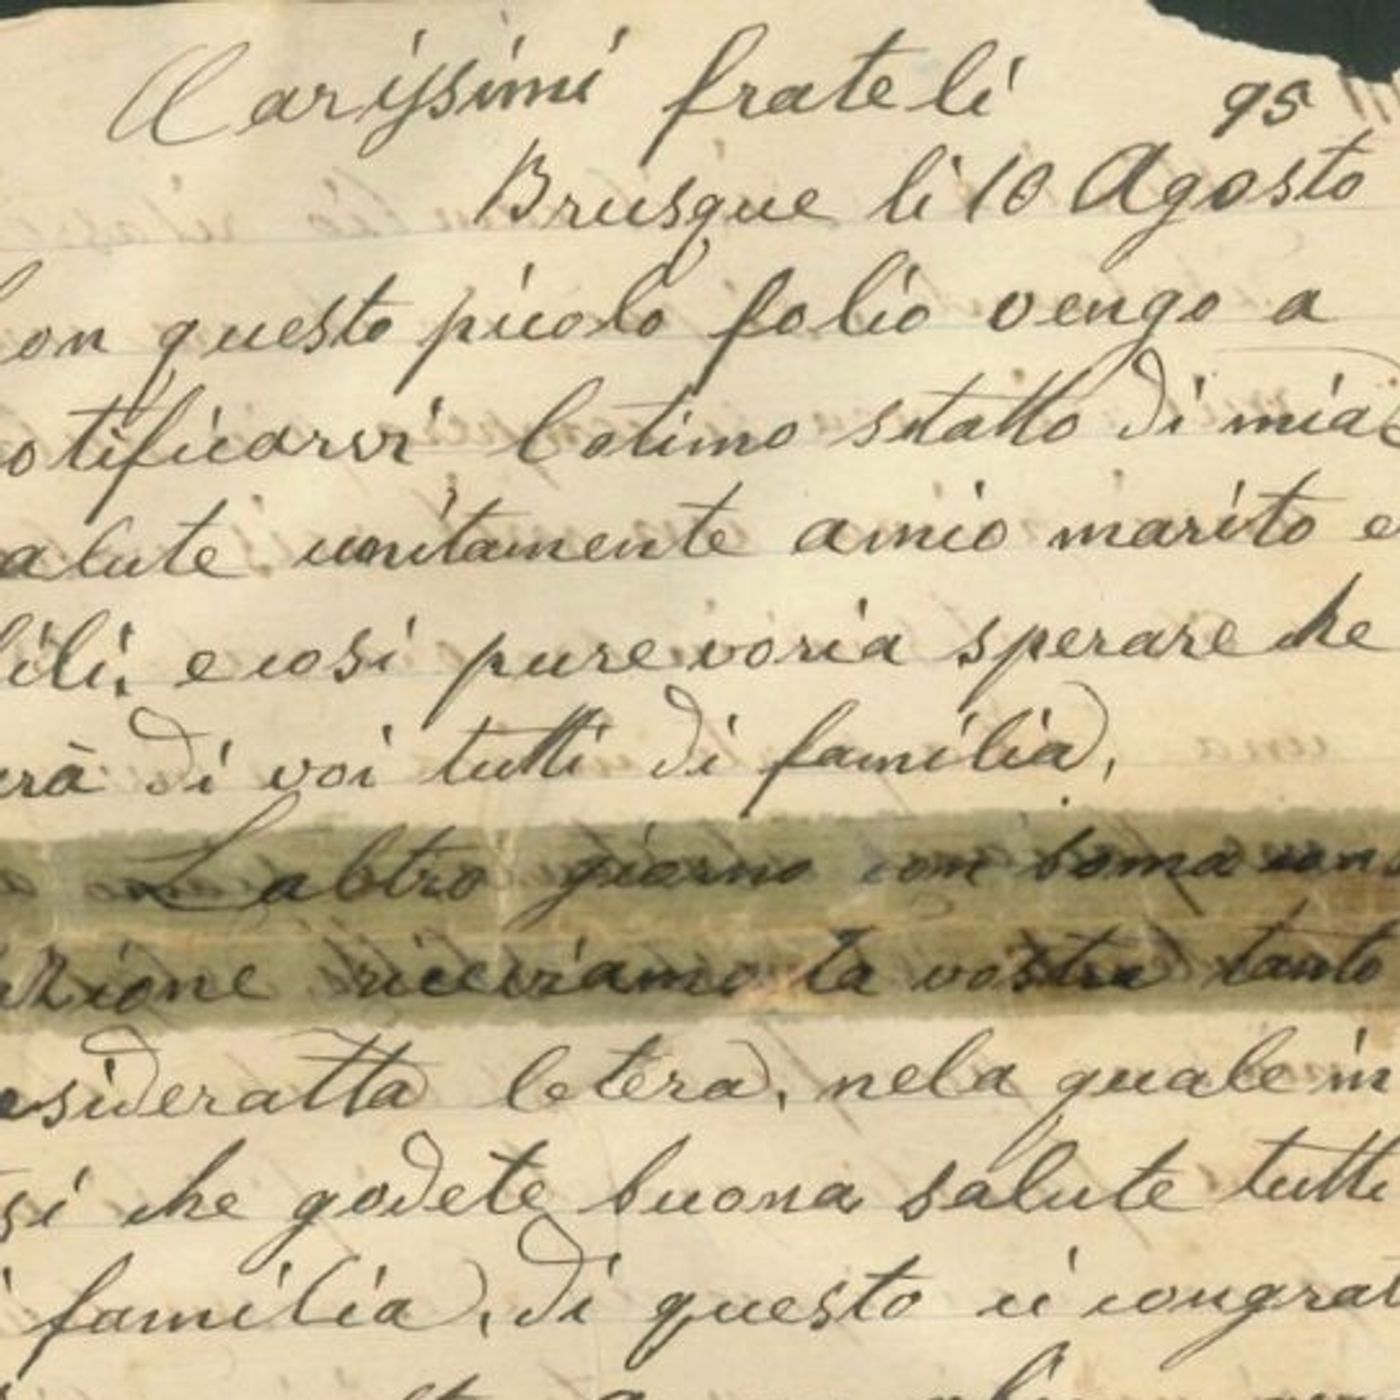 Carissimi frateli
95
Brusque li 10 Agosto
Con questo picolo folio vengo a
otificarvi lotimo statto di mia
alute unitamente amio marito e
fili, e cosi pure voria sperare che
erà di voi tutti di familia,
Laltro giorno con soma con
azione riceviamo la vostra tanto
esideratta letera, nela quale in
si che godete buona salute tutti
i familia, di questo ci congrat